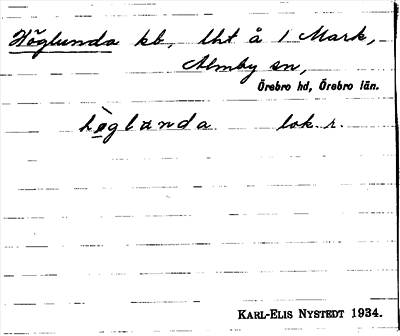 Höglunda kb, lht å 1 Mark,
Almby sn,
Örebro hd, Örebro län.
hὼglanda lok. r.
KARL-ELIS NYSTEDT 1934.